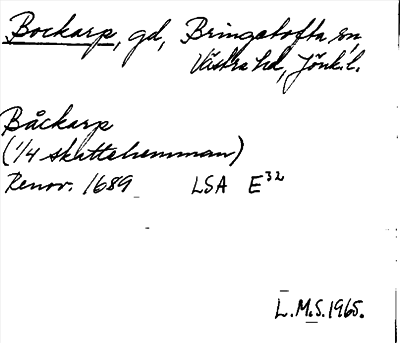 Bockarp, gd, Bringetofta sn,
Västra hd, Jönk. l.
Båckarp
(1/4 skattehemman)
Renov. 1689 LSA E32
L.M.S. 1965.